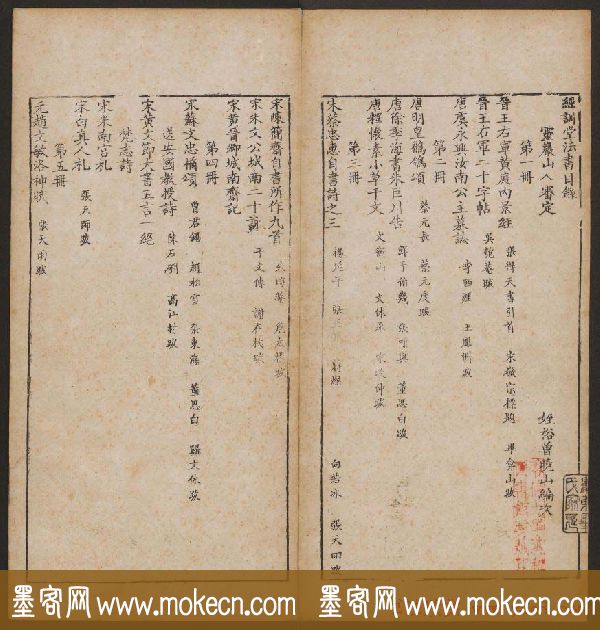 經訓堂法書目錄
靈巖山人審定
姪裕曾曉山編次
第一冊
晉王右軍黃庭內景經
張得天書引首 宋敬宗標題 畢弇山跋
晉王右軍二十字帖
吳 跋
唐虞永興汝南公主墓誌
李西涯 王鳳洲跋
第二冊
唐明皇鶺鴒頌
蔡元長 蔡元度跋
唐徐季海書朱巨川告
鮮于伯幾 張可與 董思白跋
唐釋懷素小草千文
文壽山 文休承 跋
第三冊
宋蔡忠惠自書詩之三
楊 向若冰 張天雨跋
宋陳簡齋自書所作九首
宋朱文公城南二十詠
干文傳 跋
宋黃晉卿城南齋記
第四冊
宋蘇文忠橘頌
曾君錫 趙松雪 張東海 董思白 跋
送安國教授詩
陳石 高江村跋
宋黃文節大書五言一絕
梵志詩
宋米南宮札
宋白真人札
張天師跋
第五冊
元趙文敏洛神賦
張天雨跋
墨客网 www.mokecn.com
墨客网 www.mokecn.com